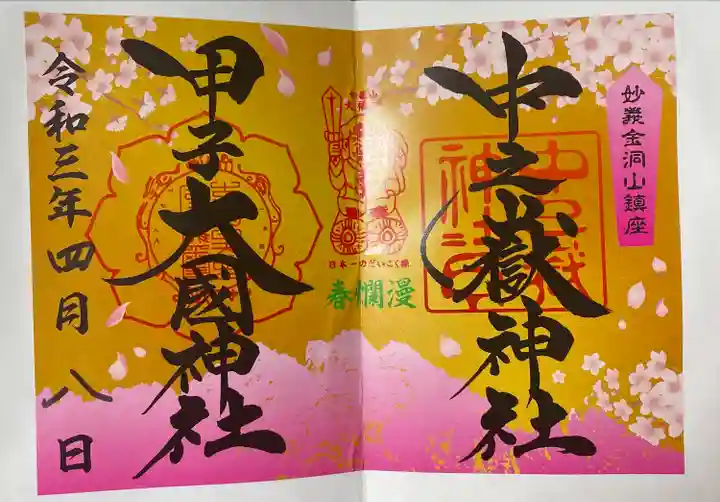 妙義金洞山鎮座
中之嶽神社
日本一のだいこく様
春爛漫
甲子大國神社
令和三年四月八日